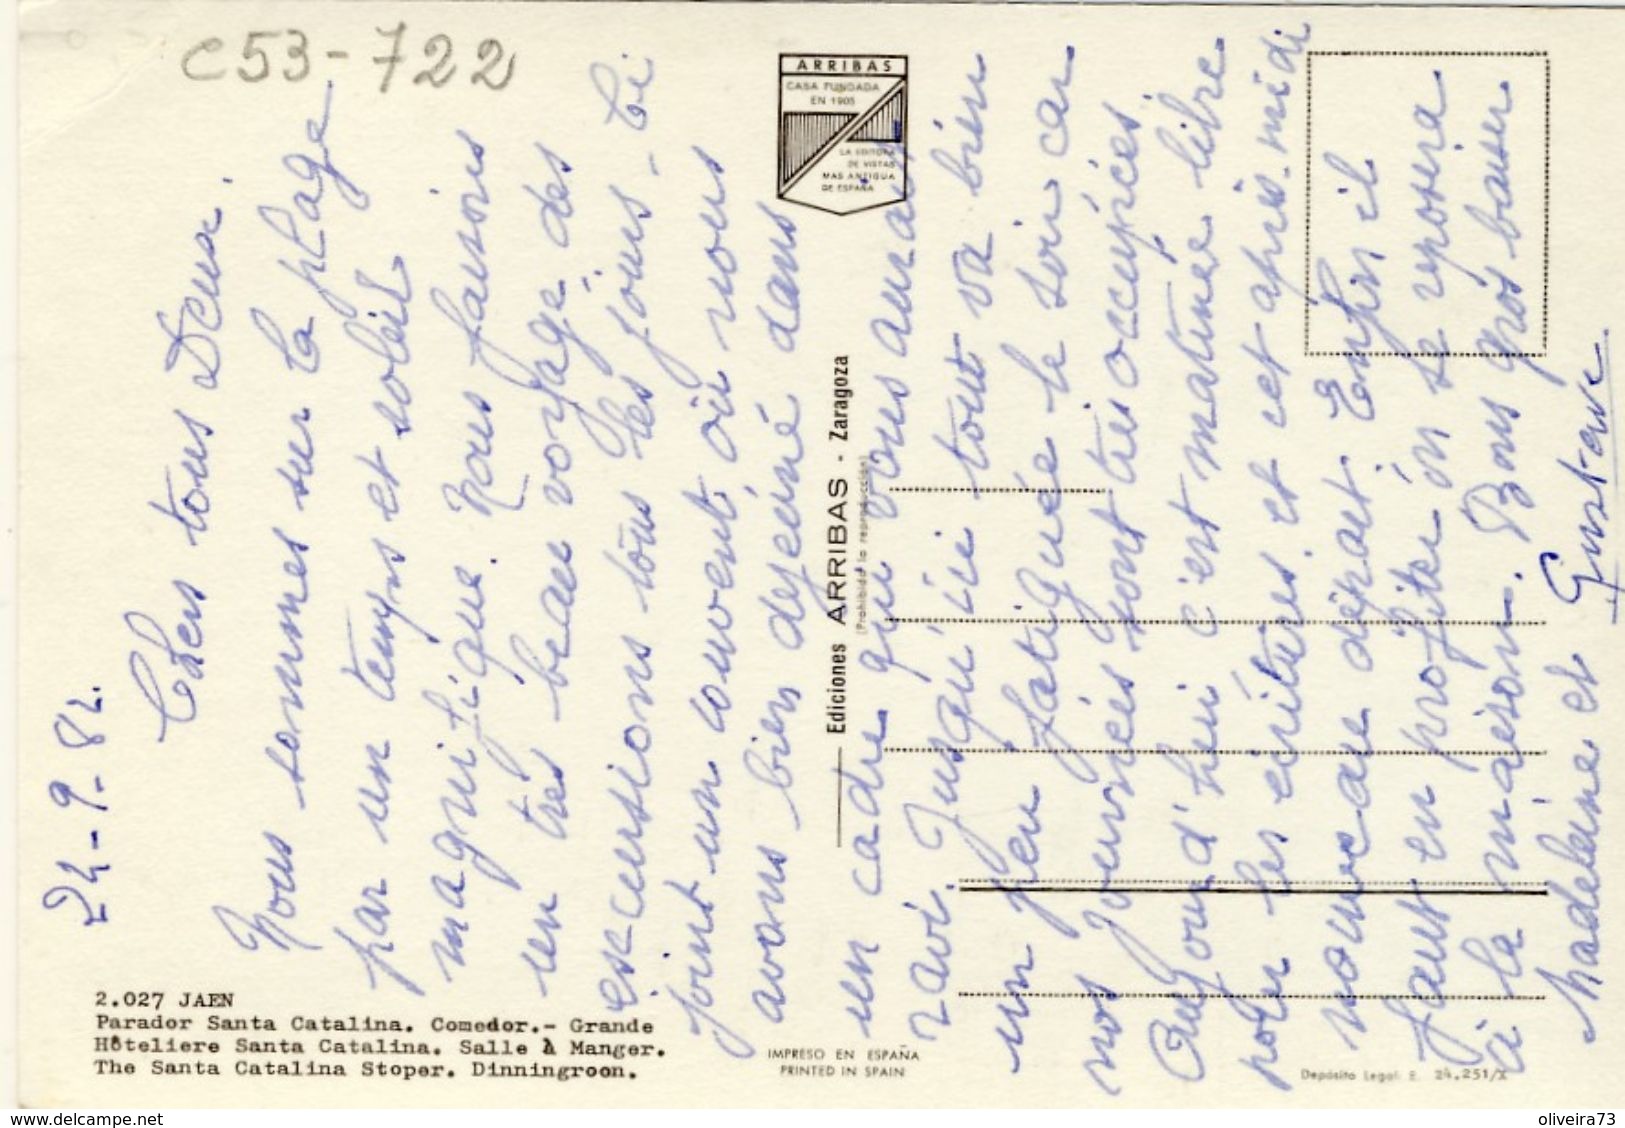 c53-722
24-9-82.
Chers tous Deux.
Nous sommes sur la plage
par un temps et soleil
magnifique. Nous faisons
un très beau voyage des
excursions tous les jours - Ci
joint un couvent où nous
avons bien dejeuné dans
un cadre qui vous aurait
ravi. Jusqu'ici tout va bien
un peu fatiguée le soir car
nos journées sont très occupées.
Aujourd'hui c'est matinée libre
pour les écritures et cet après-midi
nouveau départ. Enfin il
faut en profiter on se reposera
à la maison. Bons gros baisers
Madeleine et Gustave
ARRIBAS
CASA FUNDADA
EN 1905
LA EDITORA
DE VISTAS
MAS ANTIGUA
DE ESPAÑA
Ediciones ARRIBAS - Zaragoza
(Prohibida la reproducción)
2.027 JAEN
Parador Santa Catalina. Comedor.- Grande
Hôteliere Santa Catalina. Salle à Manger.
The Santa Catalina Stoper. Dinningroon.
IMPRESO EN ESPAÑA
PRINTED IN SPAIN
Depósito Legal B. 24.251/X
oliveira73